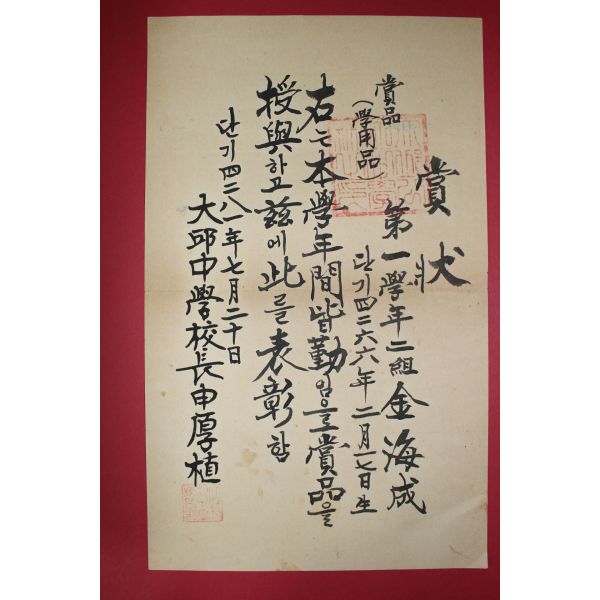 賞狀
第一學年二組 金海成
단기四二六六年二月一七日生
賞品
(學用品)
右는本學年間皆勤임을賞品을
授與하고玆에此를表彰함
단기四二八一年七月二十日
大邱中學校長申厚植